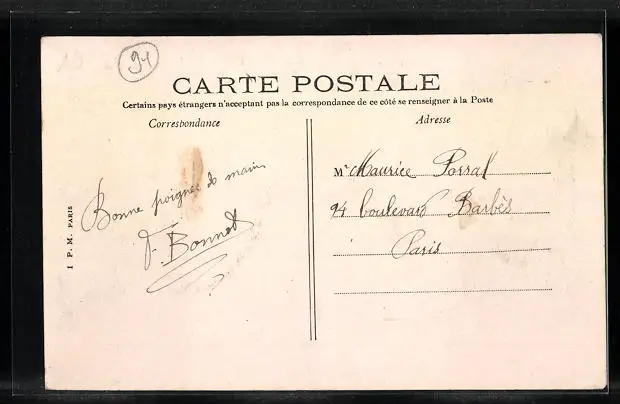 94
CARTE POSTALE
Certains pays étrangers n'acceptant pas la correspondance de ce côté se renseigner à la Poste
Correspondance
Adresse
Bonne poignée de main
F. Bonnet
Mr Maurice Porral
94 boulevard Barbès
Paris
I P. M. PARIS